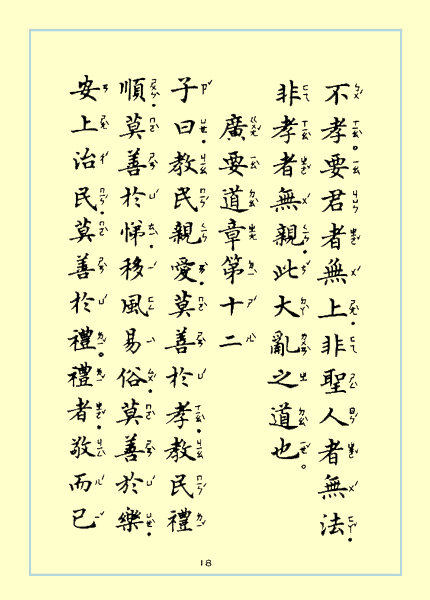 不孝。要君者無上.非聖人者無法.
非孝者無親.此大亂之道也。
廣要道章第十二
子曰.教民親愛.莫善於孝.教民禮
順.莫善於悌.移風易俗.莫善於樂.
安上治民.莫善於禮。禮者.敬而已
18